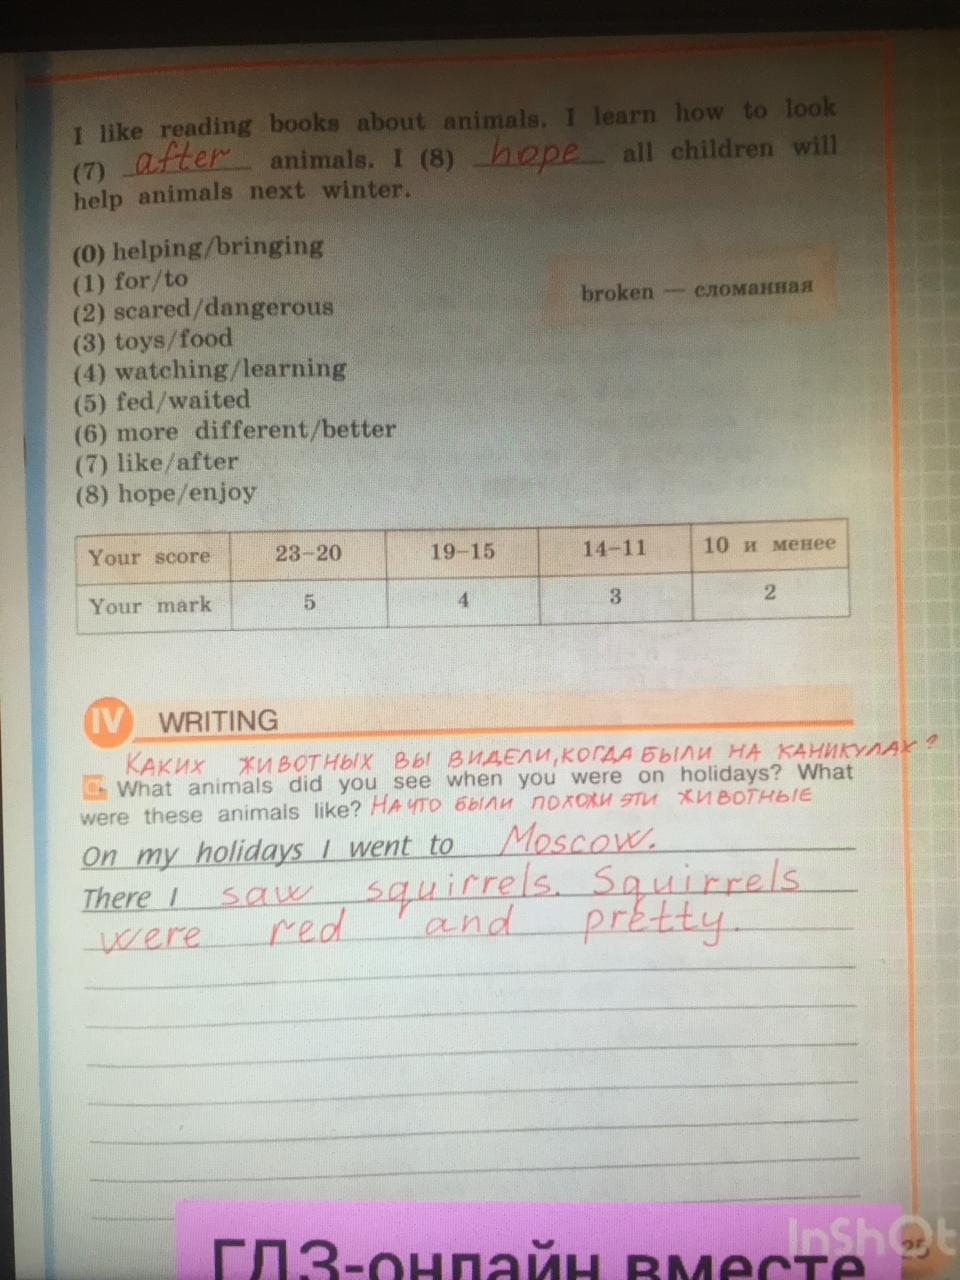 I like reading books about animals. I learn how to look
(7) after animals. I (8) hope all children will
help animals next winter.
(0) helping/bringing
(1) for/to
(2) scared/dangerous
broken — сломанная
(3) toys/food
(4) watching/learning
(5) fed/waited
(6) more different/better
(7) like/after
(8) hope/enjoy
Your score 23–20 19–15 14–11 10 и менее
Your mark 5 4 3 2
IV WRITING
КАКИХ ЖИВОТНЫХ ВЫ ВИДЕЛИ, КОГДА БЫЛИ НА КАНИКУЛАХ?
What animals did you see when you were on holidays? What
were these animals like? НА ЧТО БЫЛИ ПОХОЖИ ЭТИ ЖИВОТНЫЕ
On my holidays I went to Moscow.
There I saw squirrels. Squirrels
were red and pretty.
InShOt
ГДЗ-онлайн вместе